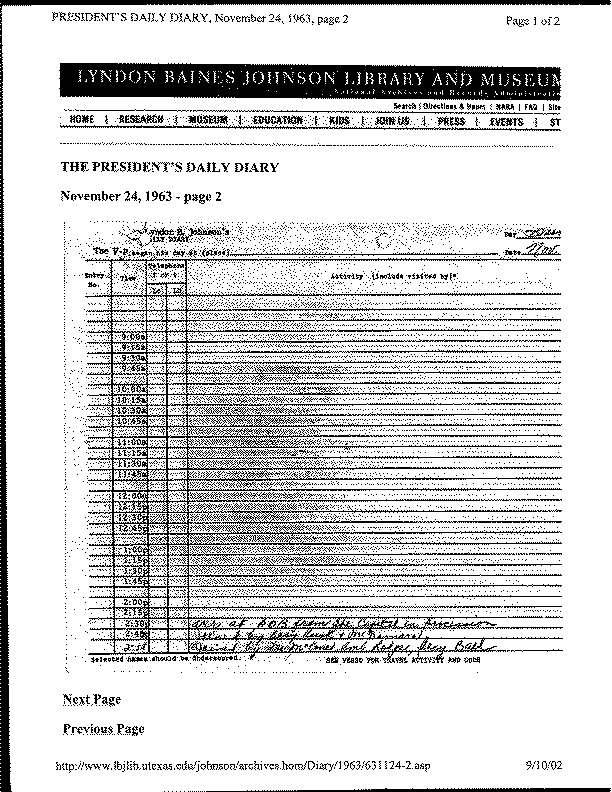 PRESIDENT'S DAILY DIARY, November 24, 1963, page 2
Page 1 of 2
LYNDON BAINES JOHNSON LIBRARY AND MUSEUM
National Archives and Records Administratio
Search | Directions & Hours | NARA | FAQ | Site
HOME | RESEARCH | MUSEUM | EDUCATION | KIDS | JOIN US | PRESS | EVENTS | ST
THE PRESIDENT'S DAILY DIARY
November 24, 1963 - page 2
Lyndon B. Johnson's
DAILY DIARY
Day
The V-P began his day at (place)
Date Nov.
Entry No.
Time
Telephone
Activity (include visited by)
9:00a
9:15a
9:30a
9:45a
10:00a
10:15a
10:30a
10:45a
11:00a
11:15a
11:30a
11:45a
12:00p
12:15p
12:30p
12:45p
1:00p
1:15p
1:30p
1:45p
2:00p
2:15p
2:30p arr at EOB from the Capitol in Procession
2:40 by Secy Rusk & McNamara
by McCone and Lodge, Secy Ball
Selected names should be underscored.
SEE VERSO FOR TRAVEL ACTIVITY AND CODE
Next Page
Previous Page
http://www.lbjlib.utexas.edu/johnson/archives.hom/Diary/1963/631124-2.asp
9/10/02